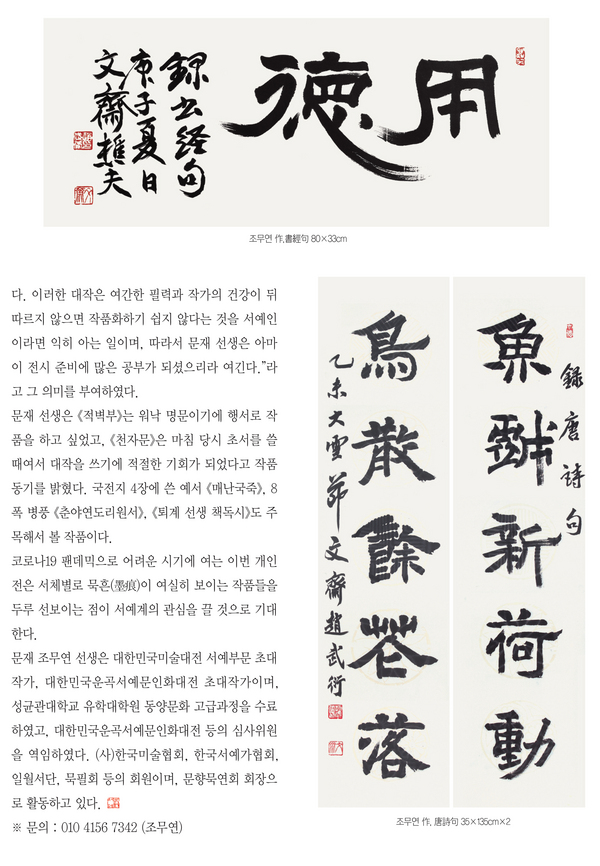 用德
錄书经句
庚子夏日
文齋樵夫
조무연 作,書經句 80×33cm
다. 이러한 대작은 여간한 필력과 작가의 건강이 뒤
따르지 않으면 작품화하기 쉽지 않다는 것을 서예인
이라면 익히 아는 일이며, 따라서 문재 선생은 아마
이 전시 준비에 많은 공부가 되셨으리라 여긴다.”라
고 그 의미를 부여하였다.
문재 선생은 《적벽부》는 워낙 명문이기에 행서로 작
품을 하고 싶었고, 《천자문》은 마침 당시 초서를 쓸
때여서 대작을 쓰기에 적절한 기회가 되었다고 작품
동기를 밝혔다. 국전지 4장에 쓴 예서 《매난국죽》, 8
폭 병풍 《춘야연도리원서》, 《퇴계 선생 책독시》도 주
목해서 볼 작품이다.
코로나19 팬데믹으로 어려운 시기에 여는 이번 개인
전은 서체별로 묵흔(墨痕)이 여실히 보이는 작품들을
두루 선보이는 점이 서예계의 관심을 끌 것으로 기대
한다.
문재 조무연 선생은 대한민국미술대전 서예부문 초대
작가, 대한민국운곡서예문인화대전 초대작가이며,
성균관대학교 유학대학원 동양문화 고급과정을 수료
하였고, 대한민국운곡서예문인화대전 등의 심사위원
을 역임하였다. (사)한국미술협회, 한국서예가협회,
일월서단, 묵필회 등의 회원이며, 문향묵연회 회장으
로 활동하고 있다.
※ 문의 : 010 4156 7342 (조무연)
錄唐詩句
魚戱新荷動
鳥散餘花落
乙未大雪節文齋趙武衍
조무연 作, 唐詩句 35×135cm×2